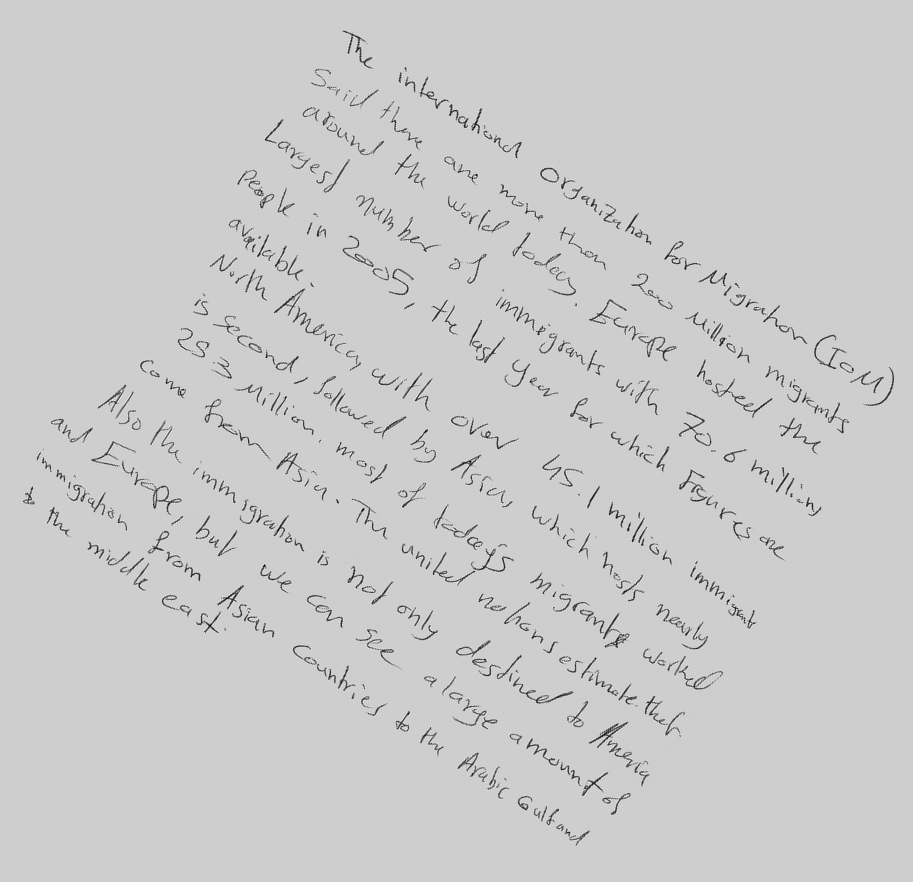 The international Organization for Migration (IOM)
Said there are more than 200 Million migrants
around the world today. Europe hosted the
Largest number of immigrants with 70.6 million,
people in 2005, the last year for which Figures are
available.
North America, with over 45.1 million immigrants
is second, followed by Asia, which hosts nearly
25 3 Million. most of today's migrants worked
come from Asia. The united nations estimate that.
Also the immigration is not only destined to America
and Europe, but we can see a large amount of
immigration from Asian Countries to the Arabic Gulf and
to the middle east.